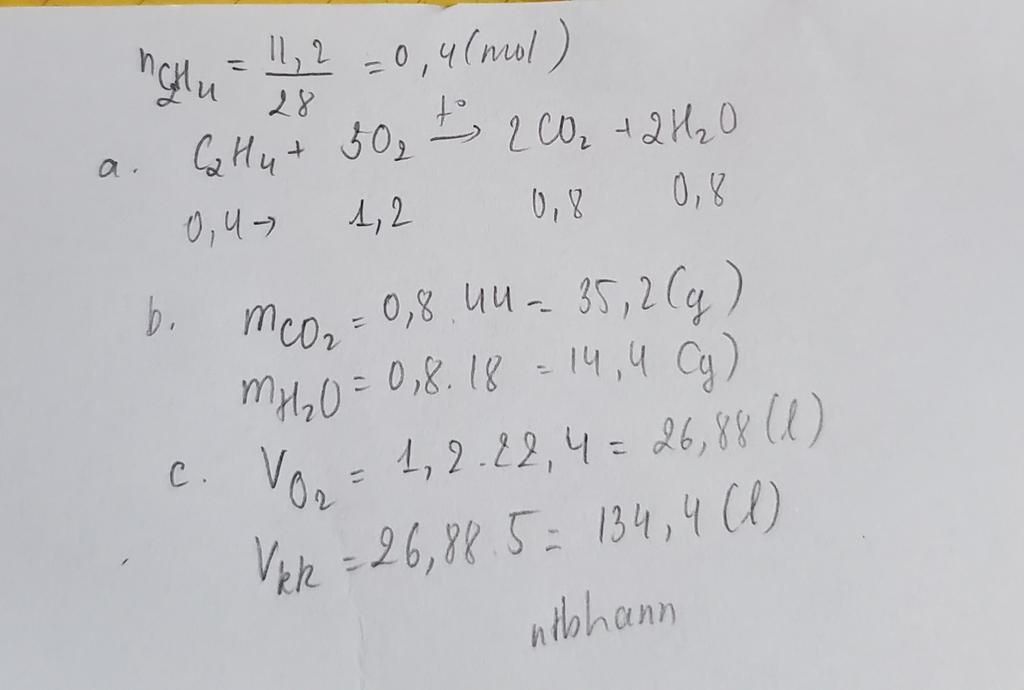 nC₂H₄ = 11,2/28 = 0,4 (mol)
a. C₂H₄ + 3O₂ t°→ 2CO₂ + 2H₂O
0,4 → 1,2 0,8 0,8
b. mCO₂ = 0,8.44 = 35,2 (g)
mH₂O = 0,8.18 = 14,4 (g)
c. VO₂ = 1,2.22,4 = 26,88 (l)
Vkk = 26,88.5 = 134,4 (l)
ntbhann